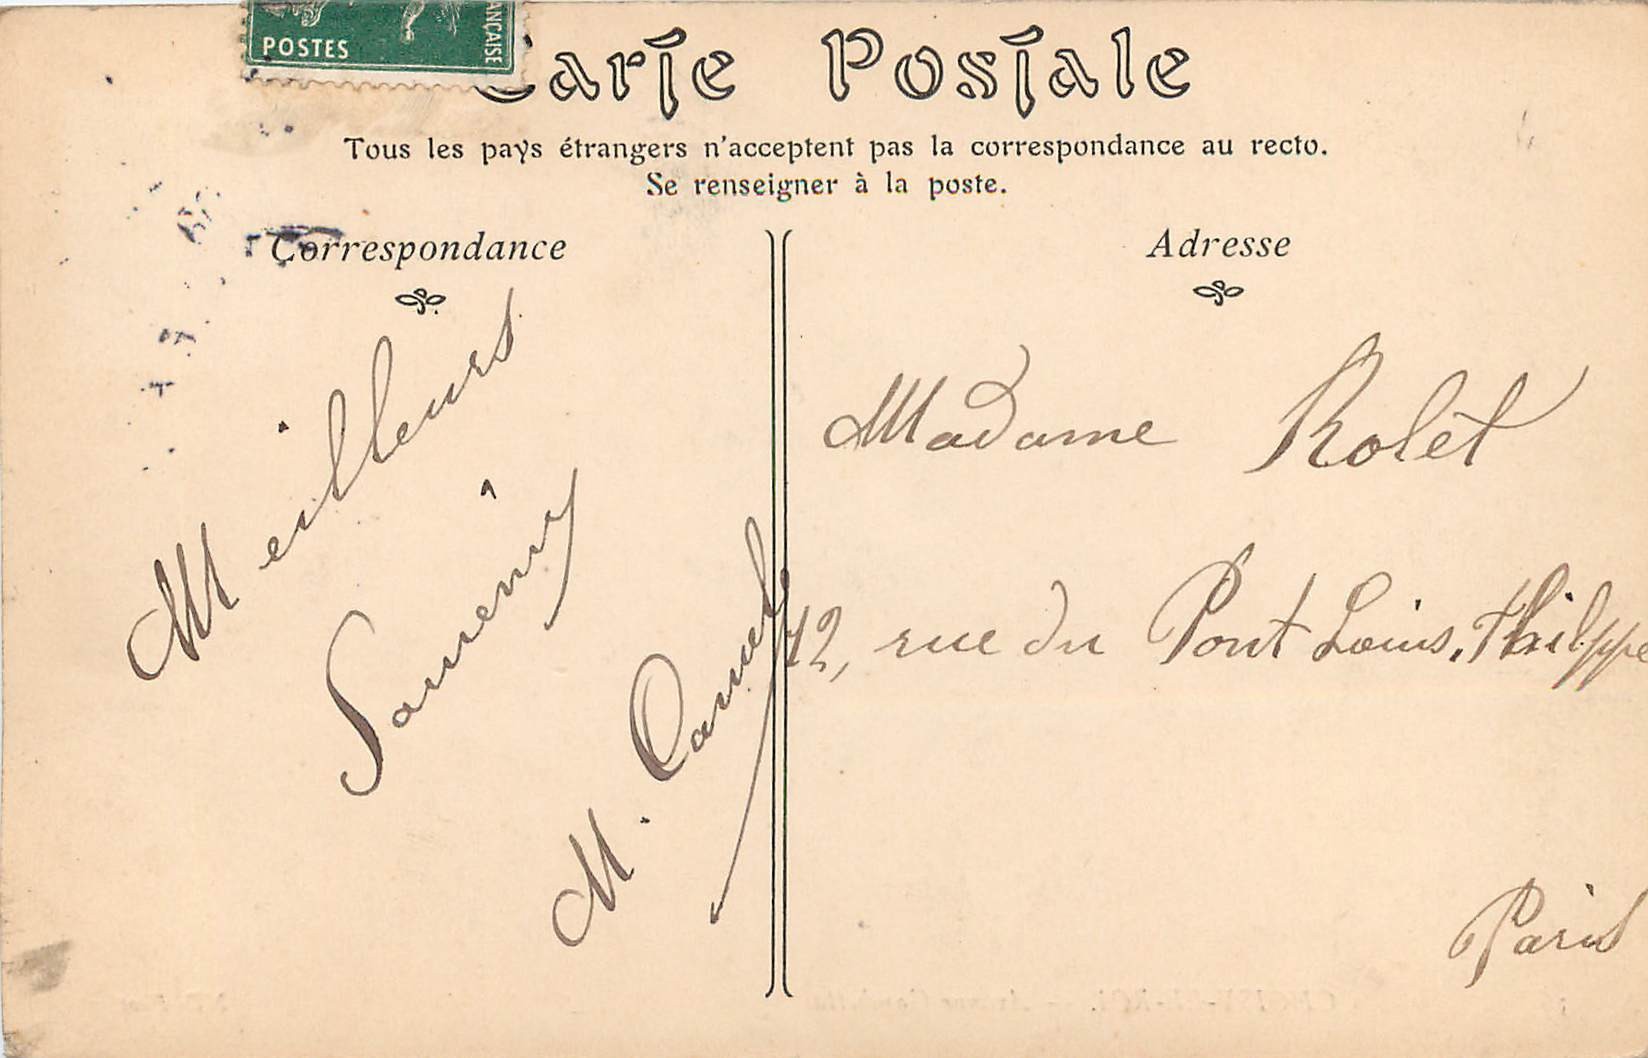 POSTES
ANÇAISE
Carte Postale
Tous les pays étrangers n'acceptent pas la correspondance au recto.
Se renseigner à la poste.
Correspondance
Meilleurs
M.
Adresse
Madame Rolet
12, rue du Pont Louis. Philippe
Paris